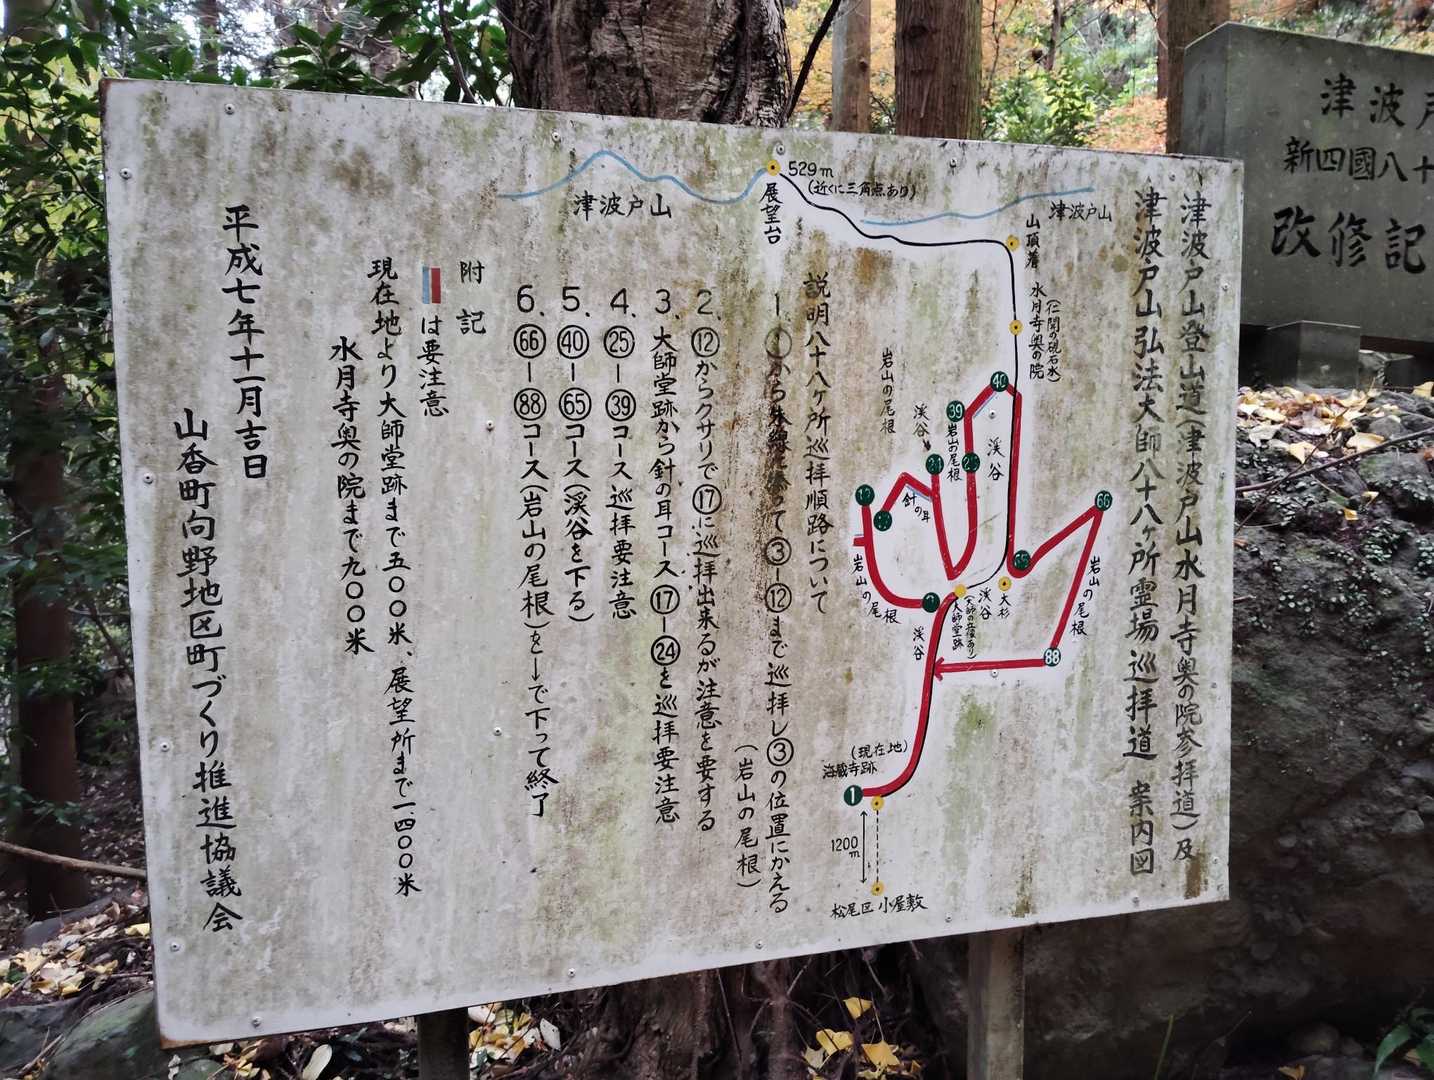 津波戸山登山道(津波戸山水月寺奥の院参拝道)及
津波戸山弘法大師八十八ヶ所霊場巡拝道 案内図
529m
(近くに三角点あり)
展望台
津波戸山
津波戸山
山頂着
水月寺奥の院
(仁聞の硯石水)
40
39
岩山の尾根
渓谷
渓谷
岩山の尾根
針の耳
66
65
岩山の尾根
88
大杉
渓谷
大師堂跡
岩山の尾根
渓谷
(現在地)
海蔵寺跡
1
1200m
松尾区小屋敷
説明八十八ヶ所巡拝順路について
1、①から朱線に添って③―⑫まで巡拝し③の位置にかえる
(岩山の尾根)
2、⑫からクサリで⑰に巡拝出来るが注意を要する
3、大師堂跡から針の耳コース⑰―㉔を巡拝要注意
4、㉕―㊴コース巡拝要注意
5、㊵―65コース(渓谷を下る)
6、66―88コース(岩山の尾根)を↓で下って終了
附記
は要注意
現在地より大師堂跡まで五〇〇米、展望所まで一、四〇〇米
水月寺奥の院まで九〇〇米
平成七年十一月吉日
山香町向野地区町づくり推進協議会
津波戸
新四國八十
改修記